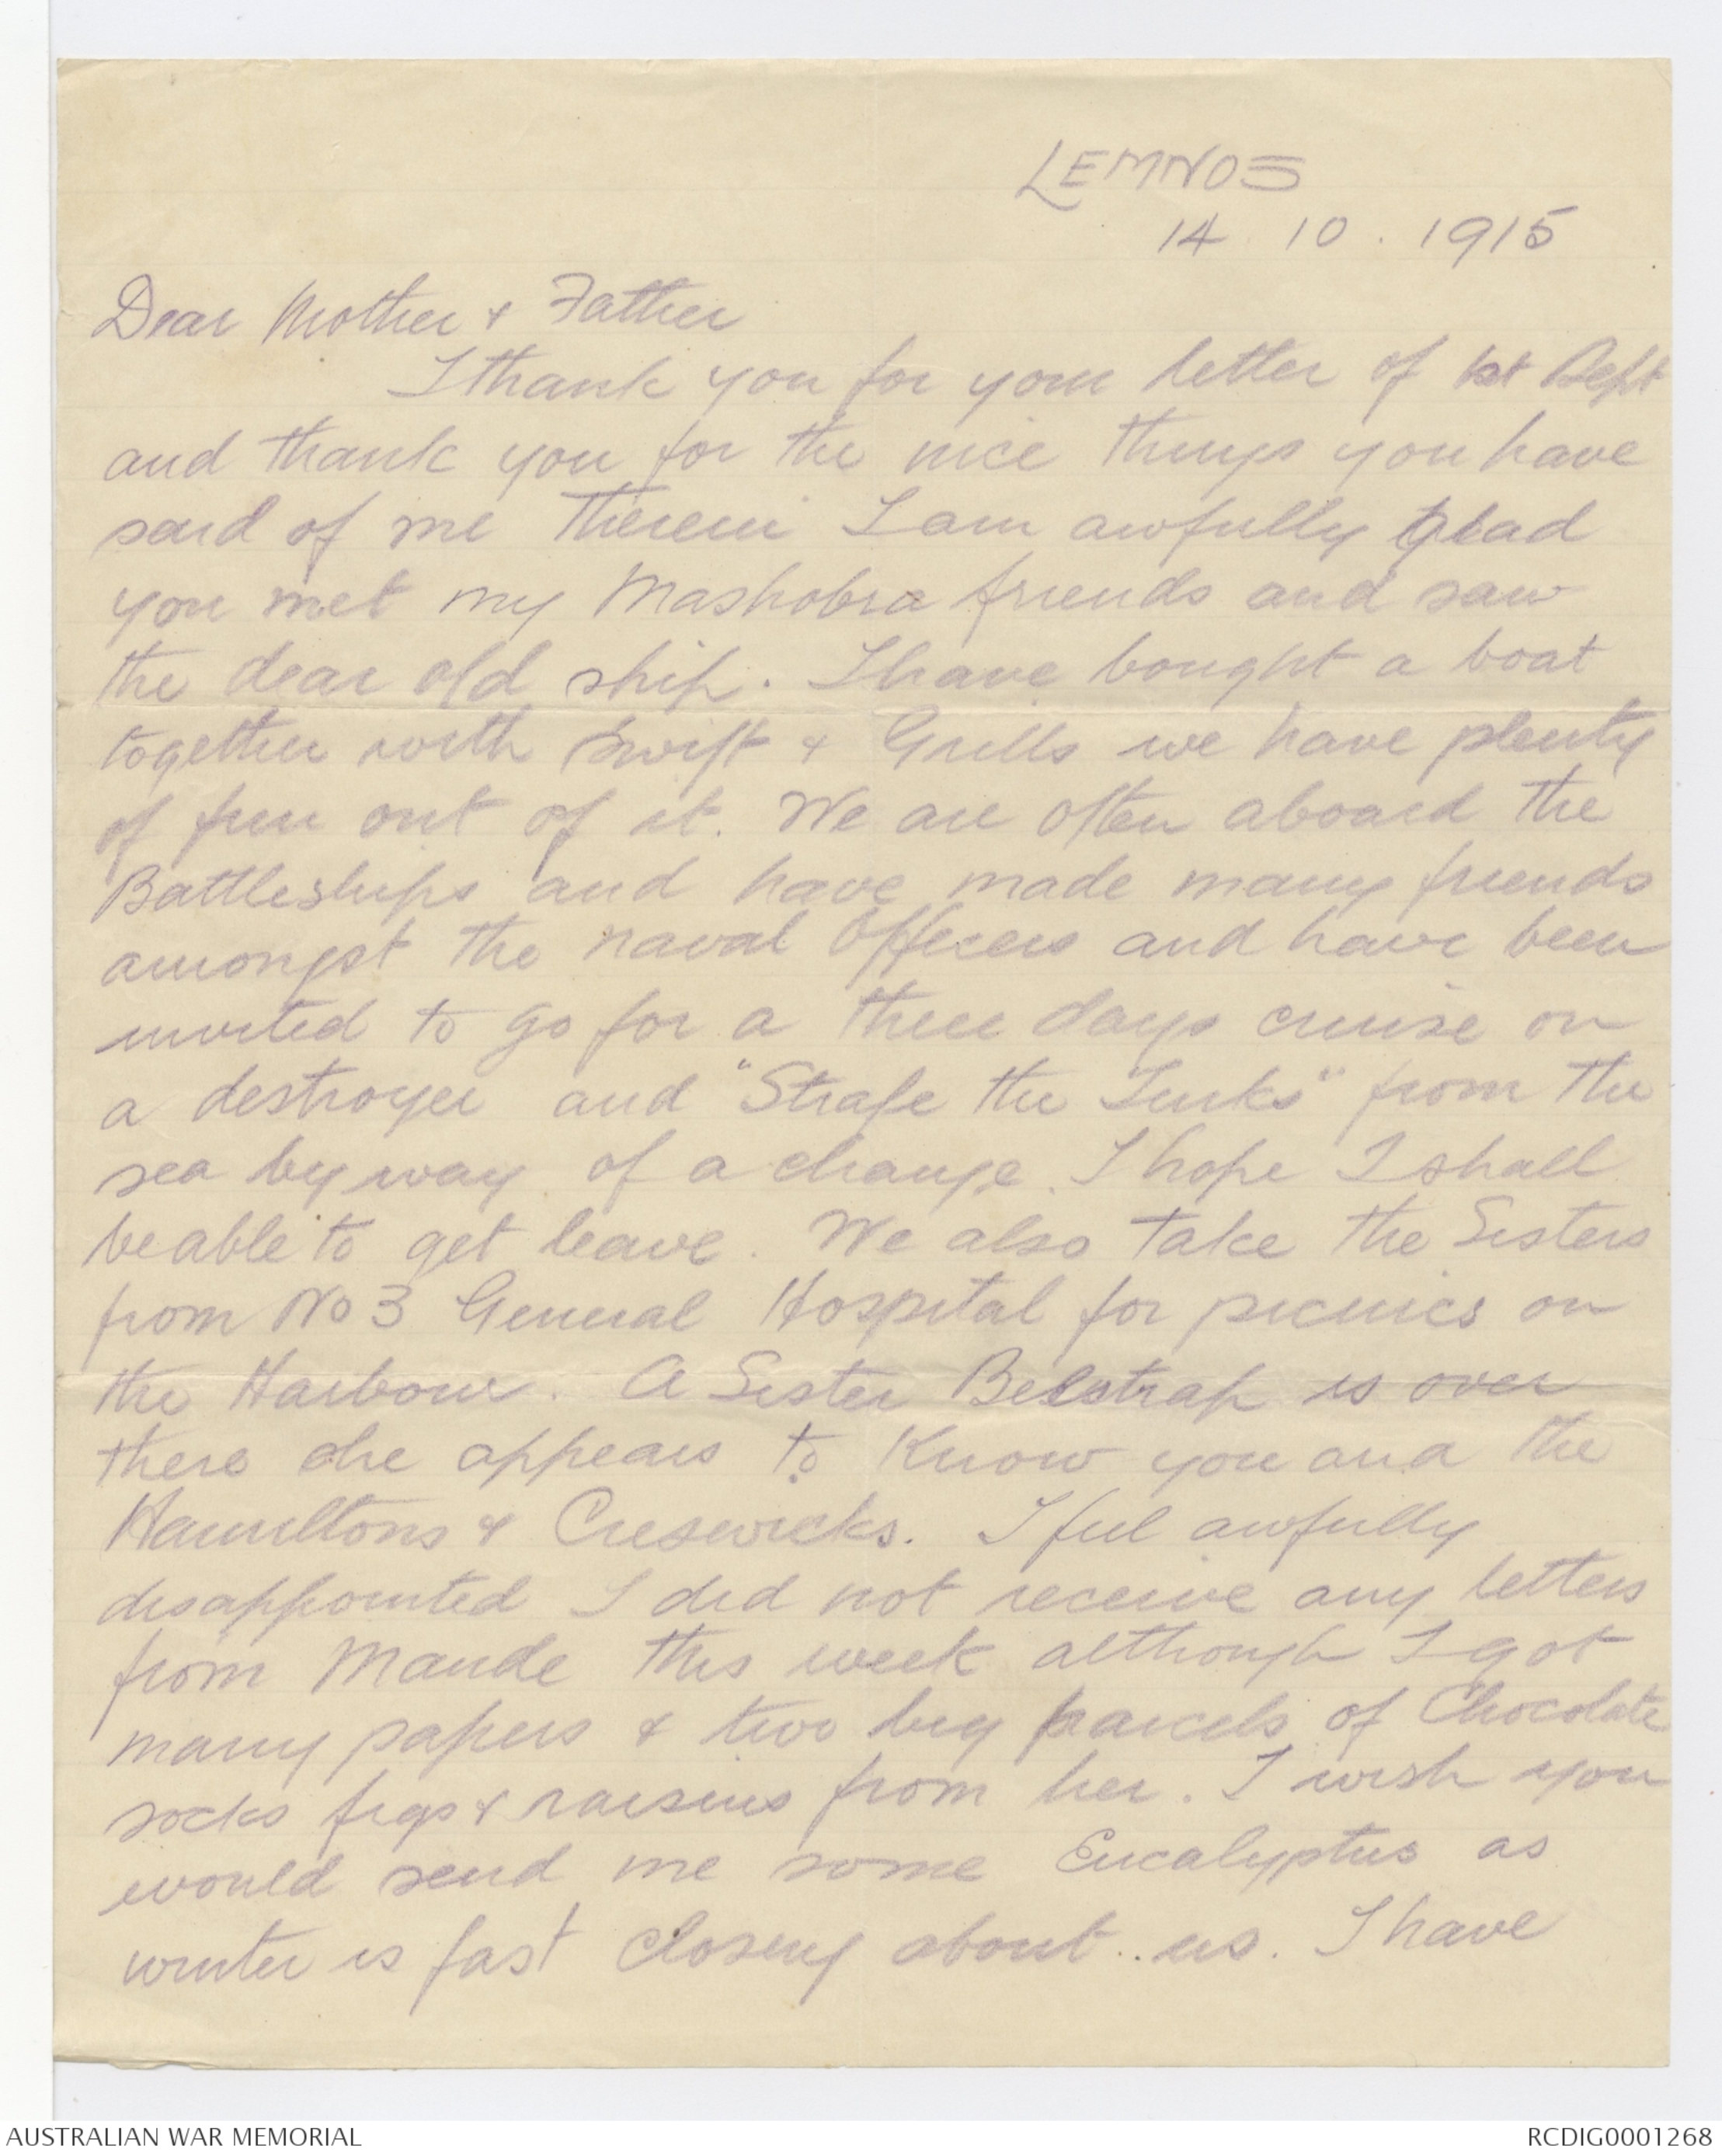 LEMNOS
14. 10. 1915
Dear Mother & Father
I thank you for your letter of 1st Sept
and thank you for the nice things you have
said of me therein I am awfully glad
you met my Mashobra friends and saw
the dear old ship. I have bought a boat
together with Swift & Grills we have plenty
of fun out of it. We are often aboard the
Battleships and have made many friends
amongst the naval Officers and have been
invited to go for a three days cruise on
a destroyer and "Strafe the Turks" from the
sea by way of a change. I hope I shall
be able to get leave. We also take the Sisters
from No 3 General Hospital for picnics on
the Harbour. A Sister Belstrap is over
there she appears to know you and the
Hamiltons & Creswicks. I feel awfully
disappointed I did not receive any letters
from Maude this week although I got
many papers & two big parcels of Chocolate
socks figs & raisins from her. I wish you
would send me some Eucalyptus as
winter is fast closing about us. I have
AUSTRALIAN WAR MEMORIAL
RCDIG0001268